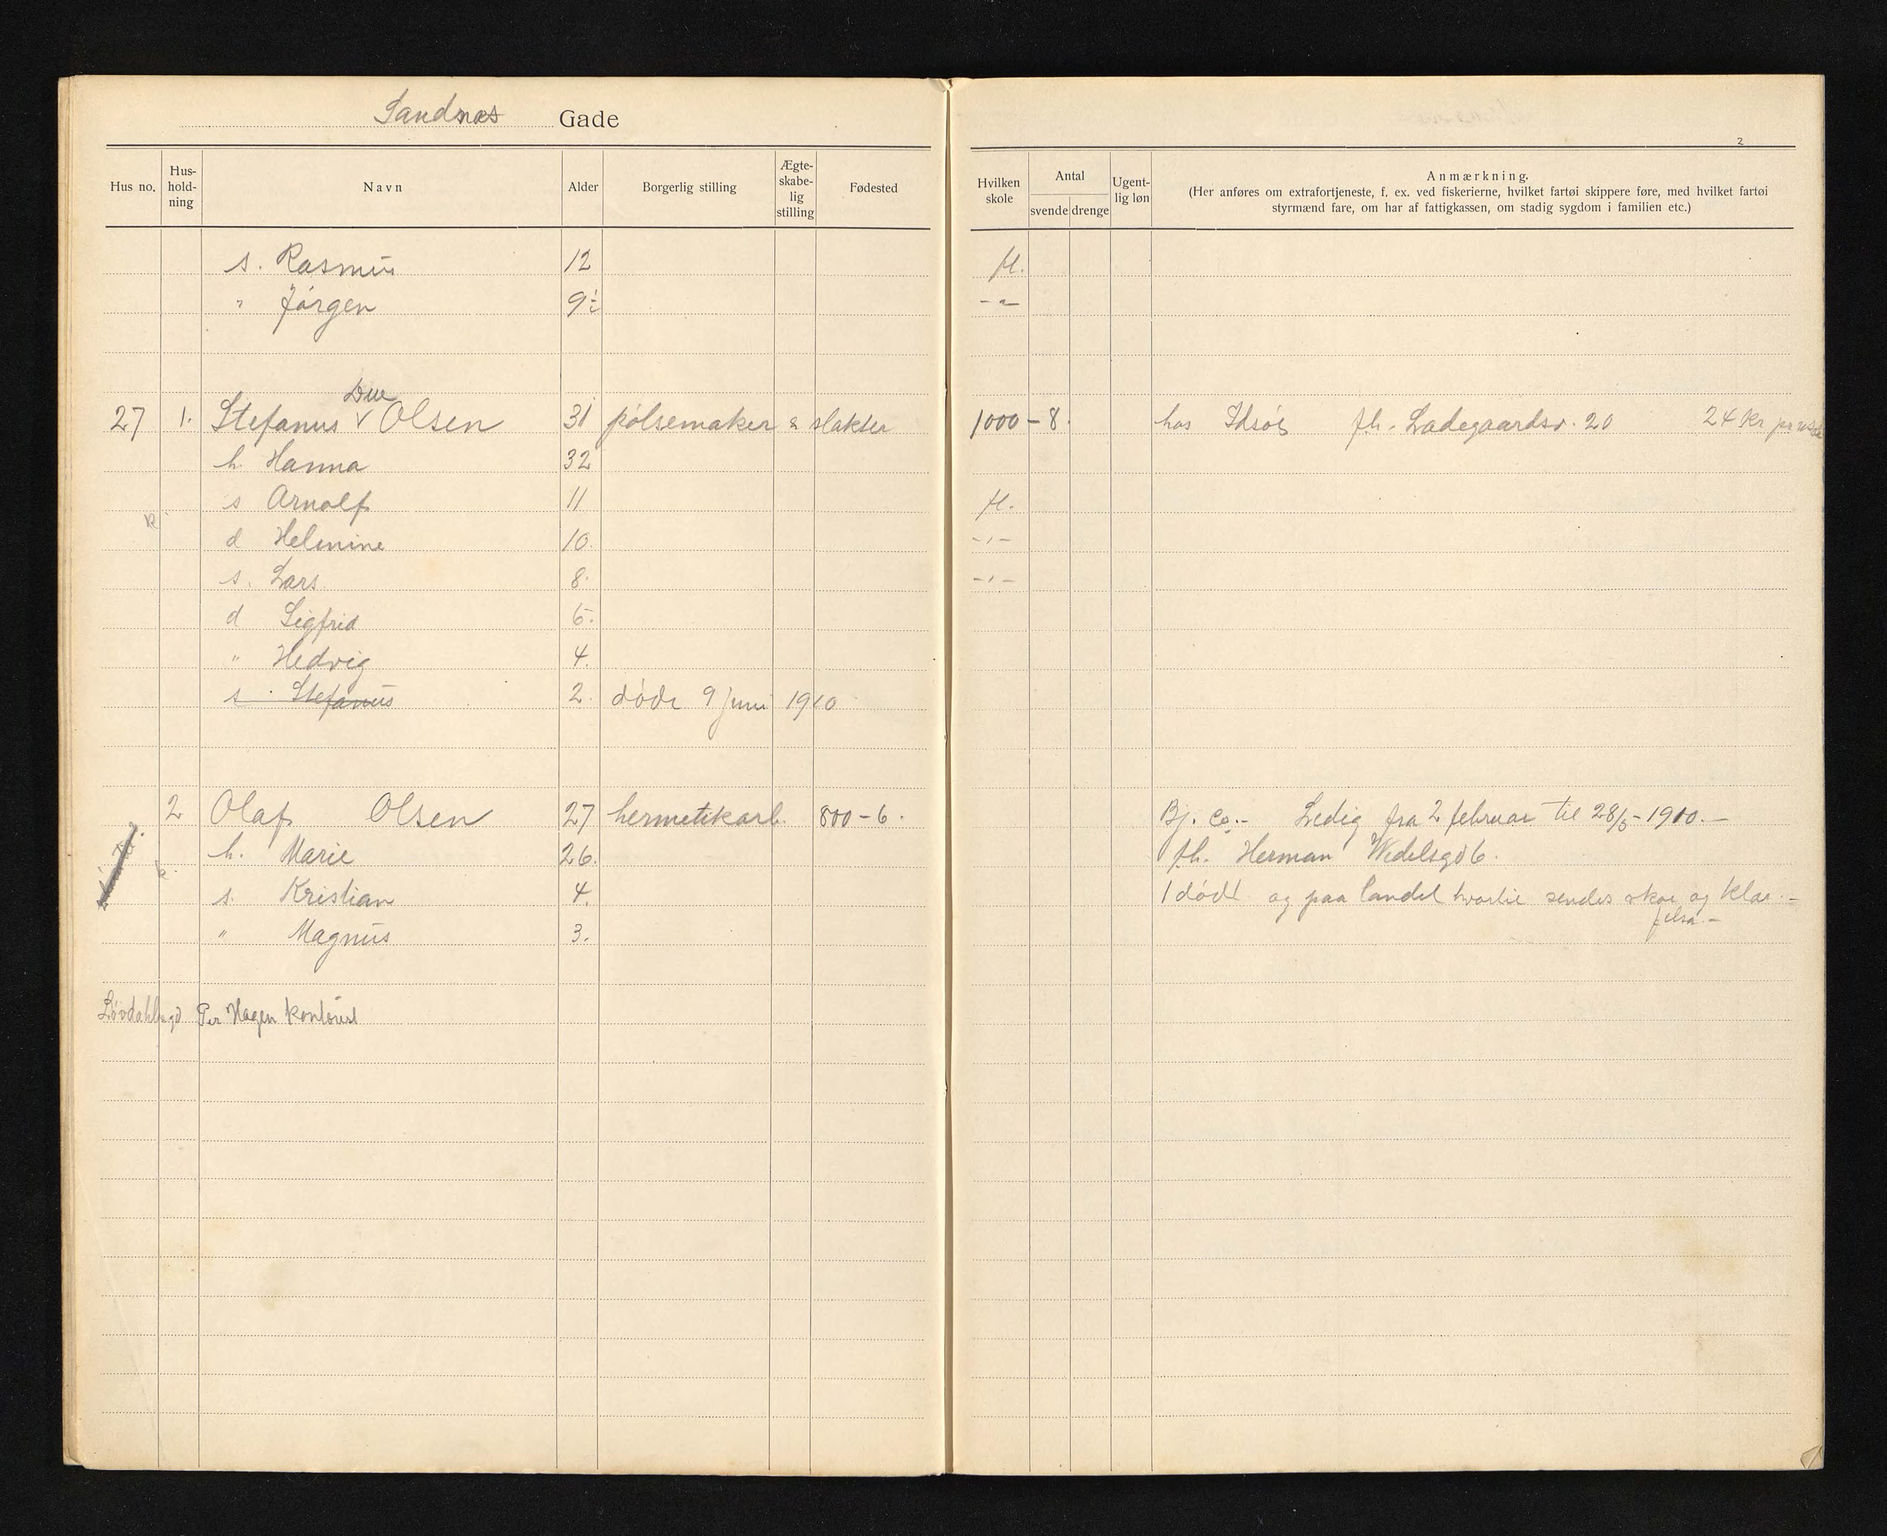 Sandnæs Gade
Hus no.
Hus-
hold-
ning
Navn
Alder
Borgerlig stilling
Ægte-
skabe-
lig
stilling
Fødested
s. Rasmus 12
" Jørgen 9½
Due
27 1. Stefanus v Olsen 31 pølsemaker & slakter
h. Hanna 32
s Arnolf 11
d Helmine 10.
s. Lars 8.
d Sigfrid 5.
" Hedvig 4.
s. Stefanus 2. døde 9 juni 1910
2 Olaf Olsen 27 hermetikarb. 800-6.
h. Marie 26.
s. Kristian 4.
" Magnus 3.
Løvdahlsgd Per Hagen kontorist
2
Hvilken
skole
Antal
svende drenge
Ugent-
lig løn
Anmærkning.
(Her anføres om extrafortjeneste, f. ex. ved fiskerierne, hvilket fartøi skippere føre, med hvilket fartøi
styrmænd fare, om har af fattigkassen, om stadig sygdom i familien etc.)
fl.
- " -
1000 - 8. hos Idsøe fh. Ladegaardsv. 20 24 Kr pr
fl.
- " -
- " -
Bj. Co. - Ledig fra 2 februar til 28/5 - 1910. -
fh. Herman Wedelsgd 6.
1 død og paa landet sendes skoe og klæ. -